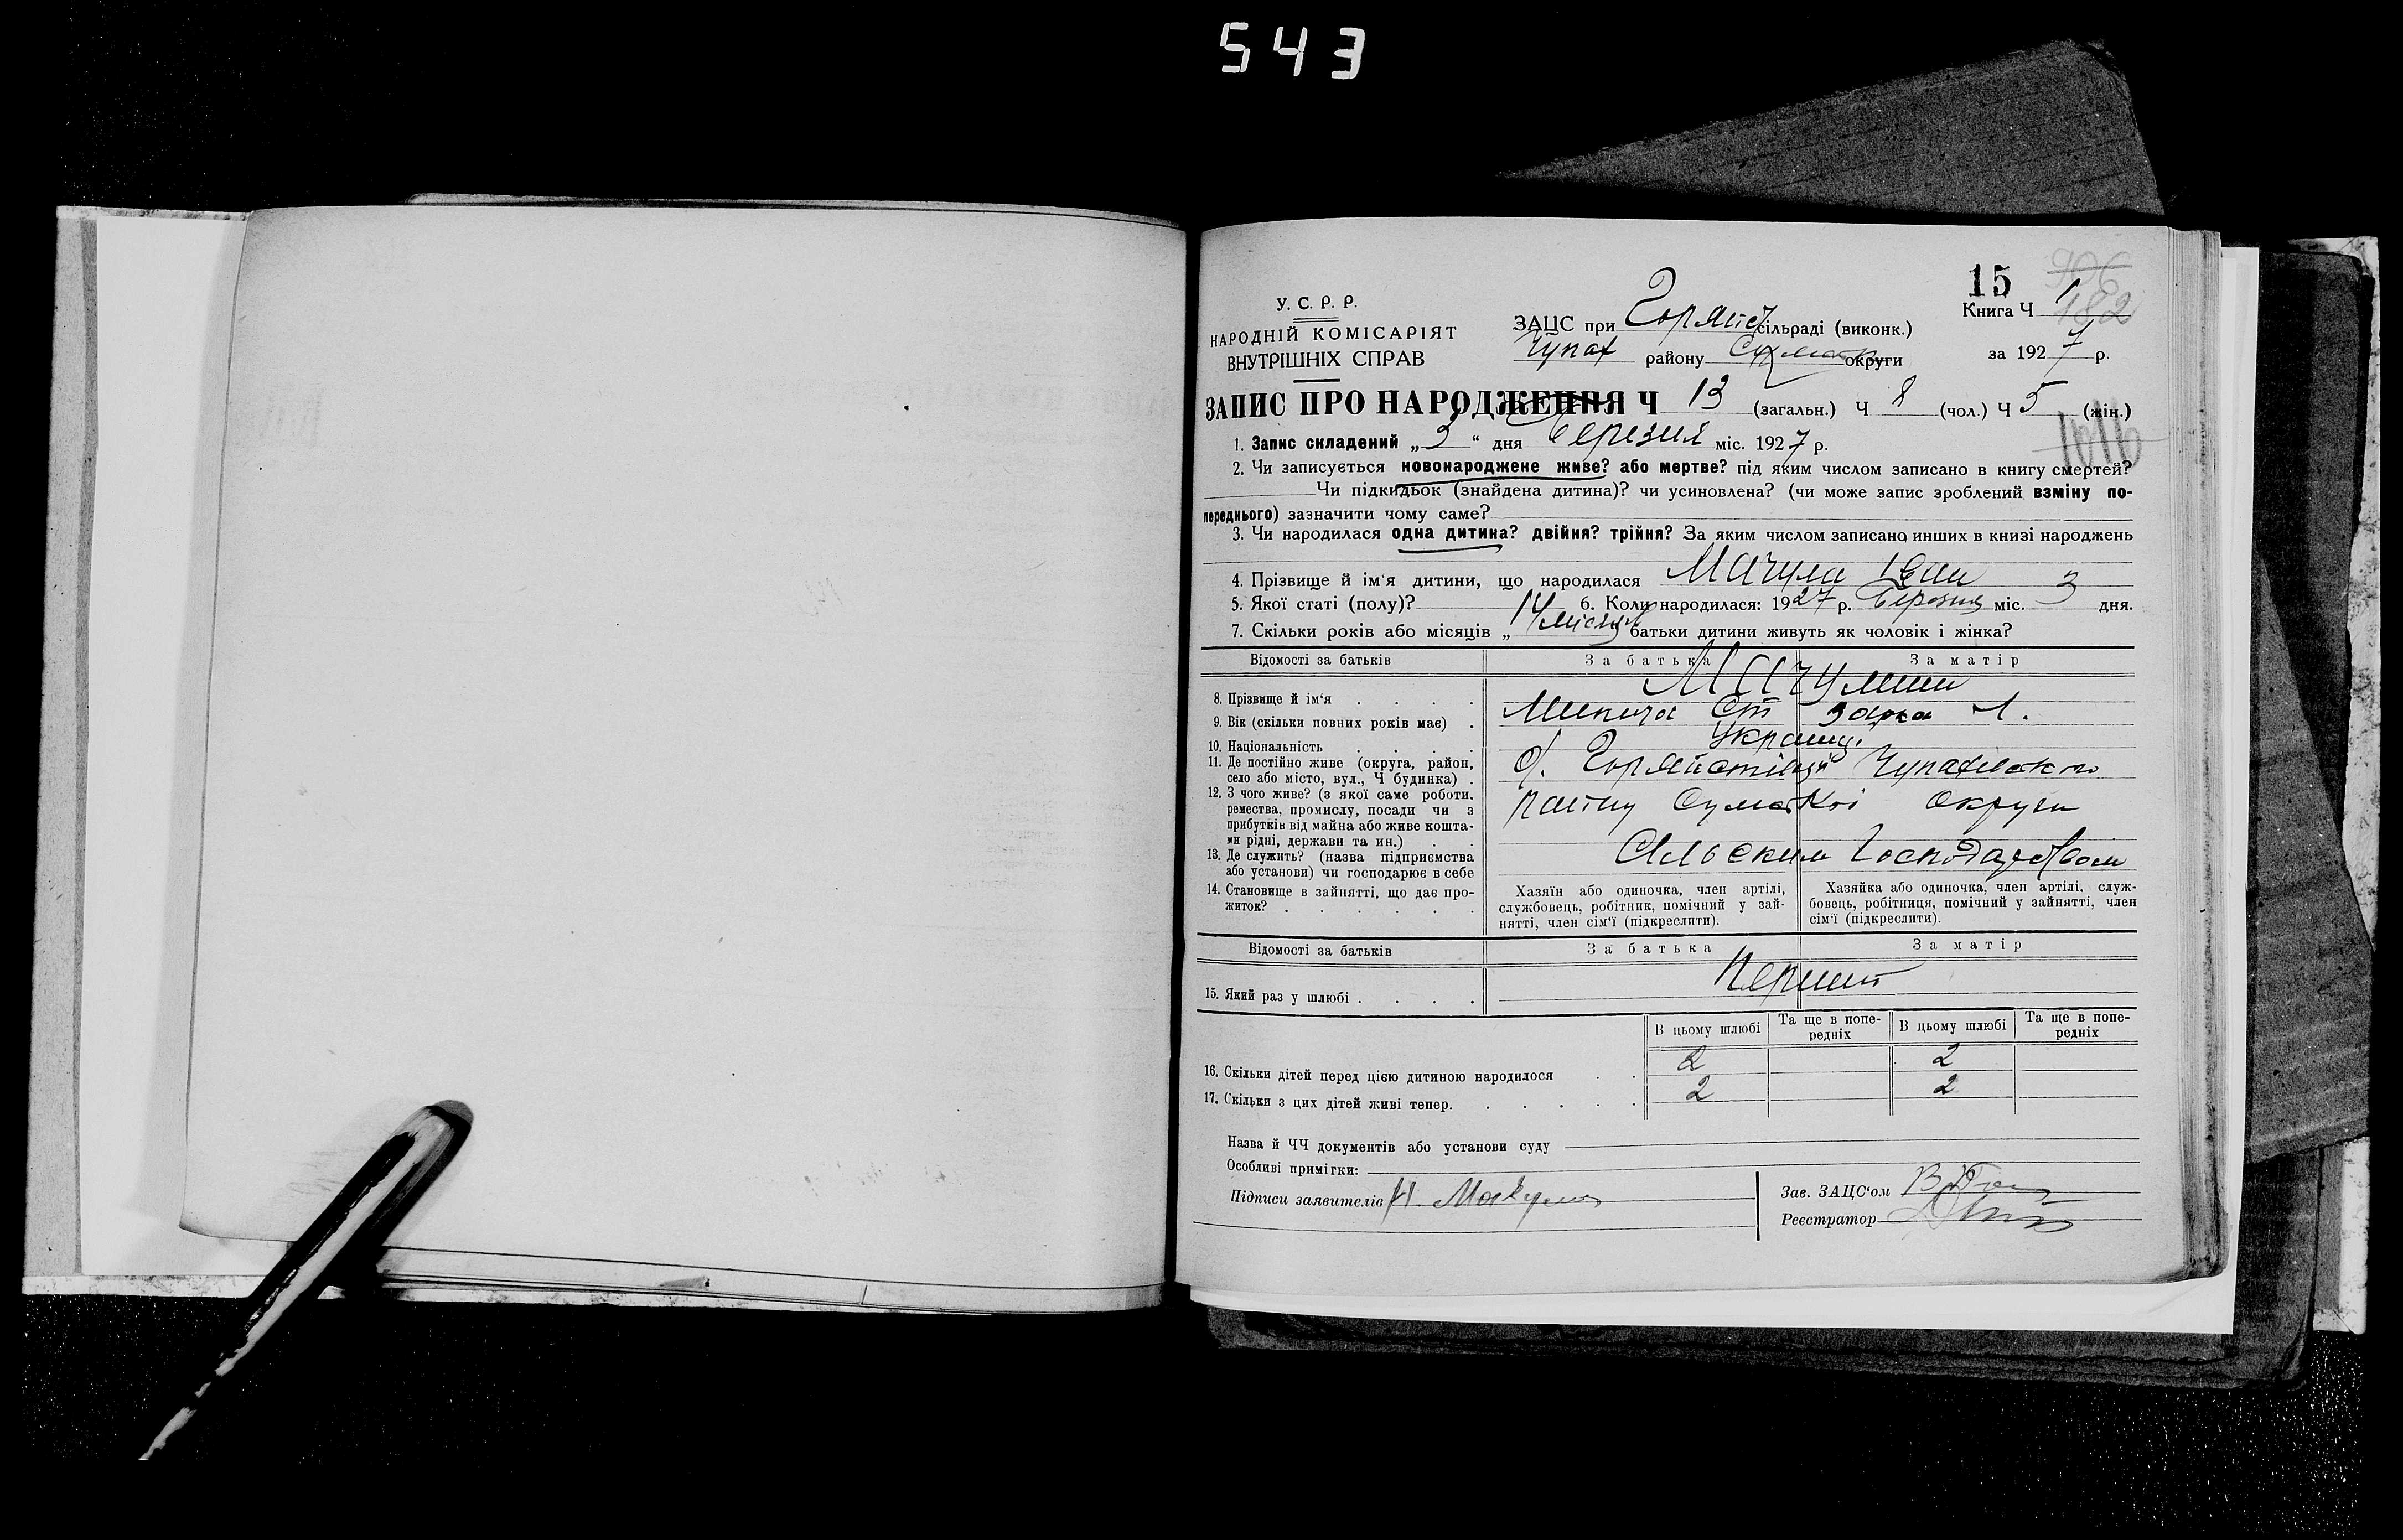 543
15
906
182
У. С. Р. Р.
НАРОДНІЙ КОМІСАРІЯТ
ВНУТРІШНІХ СПРАВ
ЗАЦС при Горяйст сільраді (виконк.)
Чупах району Сумськ округи
Книга Ч 1
за 1927 р.
ЗАПИС ПРО НАРОДЖЕННЯ Ч 13 (загальн.) Ч 8 (чол.) Ч 5 (жін.)
1. Запис складений „3“ дня березня міс. 1927 р.
1016
2. Чи записується новонароджене живе? або мертве? під яким числом записано в книгу смертей?
Чи підкидьок (знайдена дитина)? чи усиновлена? (чи може запис зроблений взміну по-
переднього) зазначити чому саме?
3. Чи народилася одна дитина? двійня? трійня? За яким числом записано инших в книзі народжень
4. Прізвище й ім'я дитини, що народилася Мачула Іван
5. Якої статі (полу)? 6. Коли народилася: 1927 р. Березня міс. 3 дня.
7. Скільки років або місяців „ 14 місяц батьки дитини живуть як чоловік і жінка?
Відомості за батьків За батька За матір
8. Прізвище й ім'я
9. Вік (скільки повних років має)
10. Національність
11. Де постійно живе (округа, район,
село або місто, вул., Ч будинка)
12. З чого живе? (з якої саме роботи,
ремества, промислу, посади чи з
прибутків від майна або живе кошта-
ми рідні, держави та ин.)
13. Де служить? (назва підприємства
або установи) чи господарює в себе
14. Становище в зайнятті, що дає про-
житок?
Микита Ст
Украінці
Чупахівського
Району Сумської Округи
Сільским Господарством
Хазяїн або одиночка, член артілі,
службовець, робітник, помічний у зай-
нятті, член сім'ї (підкреслити).
Хазяйка або одиночка, член артілі, служ-
бовець, робітниця, помічний у зайнятті, член
сім'ї (підкреслити).
Відомості за батьків За батька За матір
15. Який раз у шлюбі
В цьому шлюбі Та ще в попе-
редніх В цьому шлюбі Та ще в попе-
редніх
16. Скільки дітей перед цією дитиною народилося 2 2
17. Скільки з цих дітей живі тепер. 2 2
Назва й ЧЧ документів або установи суду
Особливі примігки:
Підписи заявителів
Зав. ЗАЦС'ом
Реєстратор